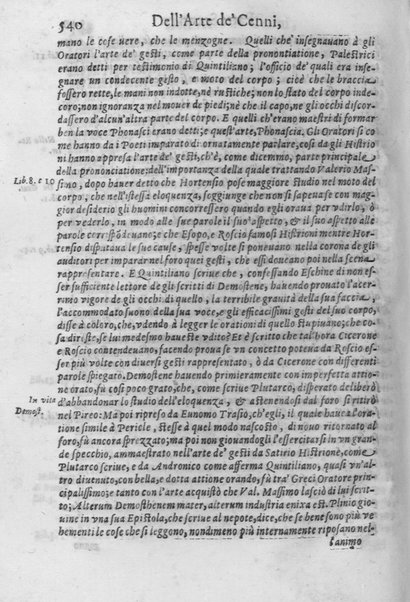 540 Dell'Arte de' Cenni,
mano le cose uere, che le menzogne. Quelli che' insegnauano à gli
Oratori l'arte de' gesti, come parte della prononciatione, Palestrici
erano detti per testimonio di Quintiliano; l'officio de' quali era inse-
gnare un condecente gesto, e moto del corpo; cioè che le braccia
fossero rette, le mani non indotte, nè rustiche; non lo stato del corpo inde-
coro; non ignoranza nel mouer de piedi; nè che il capo, ne gli occhi discor-
dassero d'alcun'altra parte del corpo. E quelli ch'erano maestri di formar
ben la voce Phonasci erano detti; e quest'arte, Phonascia. Gli Oratori si co
me hanno da i Poeti imparato di ornatamente parlare, così da gli Histrio
ni hanno appresa l'arte de' gesti, ch'è, come dicemmo, parte principale
della prononciatione: dell'importanza della quale trattando Valerio Mas-
Lib. 8. c 10 simo, dopo hauer detto che Hortensio pose maggiore studio nel moto del
corpo, che nell'istessa eloquenza, soggiunge che non si sapeua se con mag-
gior desiderio gli huomini concorressero quando egli oraua per vdirlo, ò
per vederlo, in modo alle sue parole il suo aspetto, & il suo aspetto alle
parole corrispōdeua; e che Esopo, e Roscio famosi Histrioni mentre Hor-
tensio disputaua le sue cause, spesse volte si poneuano nella corona de gli
auditori per imparar nel foro quei gesti, che essi doueano poi nella scena
rappresentare. E Quintiliano scriue che, confessando Eschine di non es-
ser sufficiente lettore de gli scritti di Demostene, hauendo prouato l'acer-
rimo vigore de gli occhi di quello, la terribile grauità della sua faccia,
l'accommodato suono della sua voce, e gli efficacissimi gesti del suo corpo,
disse à coloro, che, vdendo à legger le orationi di quello stupiuano; che co-
sa direste, se lui medesimo haueste vdito? Et è scritto che tal'hora Cicerone
e Roscio contendeuano, facendo proua se vn concetto poteua da Roscio es-
ser più volte con diuersi gesti rappresentato, ò da Cicerone con differenti
parole spiegato. Demostene hauendo primieramente con imperfetta attio-
ne orato, fù così poco grato, che, come scriue Plutarco, disperato deliberò
In vita d'abbandonar lo studio dell'eloquenza, & astenendosi dal foro si ritirò
Demost. nel Pireo: Ma poi ripreso da Eunomo Trasio, ch'egli, il quale hauea l'ora
tione simile à Pericle, stesse à quel modo nascosto, di nuouo ritornato al
foro, fù ancora sprezzato; ma poi non giouandogli l'essercitarsi in vn gran-
de specchio, ammaestrato nell'arte de' gesti da Satirio Histrione, come
Plutarco scriue, e da Andronico come afferma Quintiliano, quasi vn'al-
tro diuenuto, con bella, e dotta attione orando, fù tra' Greci Oratore prin-
cipalissimo; e tanto con l'arte acquistò che Val. Massimo lasciò di lui scrit-
to; Alterum Demosthenem mater, alterum industria enixa est. Plinio gio-
uine in vna sua Epistola, che scriue al nepote, dice, che se bene sono più ve
hementi le cose che si leggono, nondimeno più internamente riposano nel-
l'animo